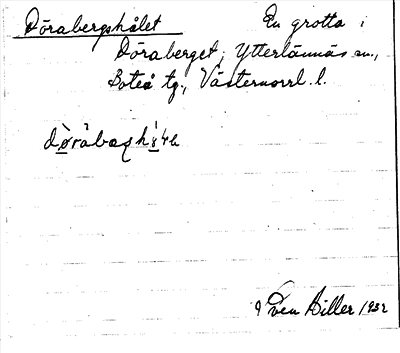 Dörabergshålet En grotta i
Döraberget, Ytterlännäs sn.,
Boteå tg., Västernorrl. l.
Sven Hiller 1932